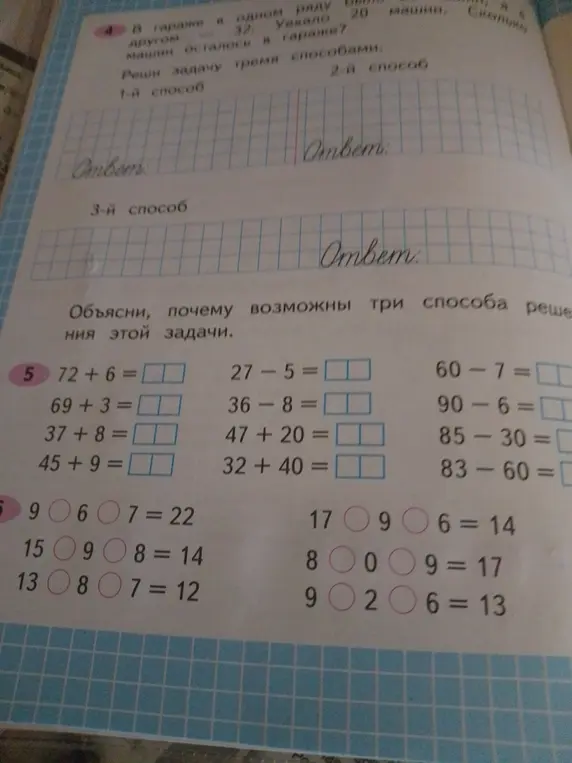 4 В гараже в одном ряду было машин, а в
другом — 32. Уехало 20 машин. Сколько
машин осталось в гараже?
Реши задачу тремя способами.
1-й способ 2-й способ
Ответ: Ответ:
3-й способ
Ответ:
Объясни, почему возможны три способа реше
ния этой задачи.
5 72 + 6 = 27 − 5 = 60 − 7 =
69 + 3 = 36 − 8 = 90 − 6 =
37 + 8 = 47 + 20 = 85 − 30 =
45 + 9 = 32 + 40 = 83 − 60 =
9 ○ 6 ○ 7 = 22 17 ○ 9 ○ 6 = 14
15 ○ 9 ○ 8 = 14 8 ○ 0 ○ 9 = 17
13 ○ 8 ○ 7 = 12 9 ○ 2 ○ 6 = 13